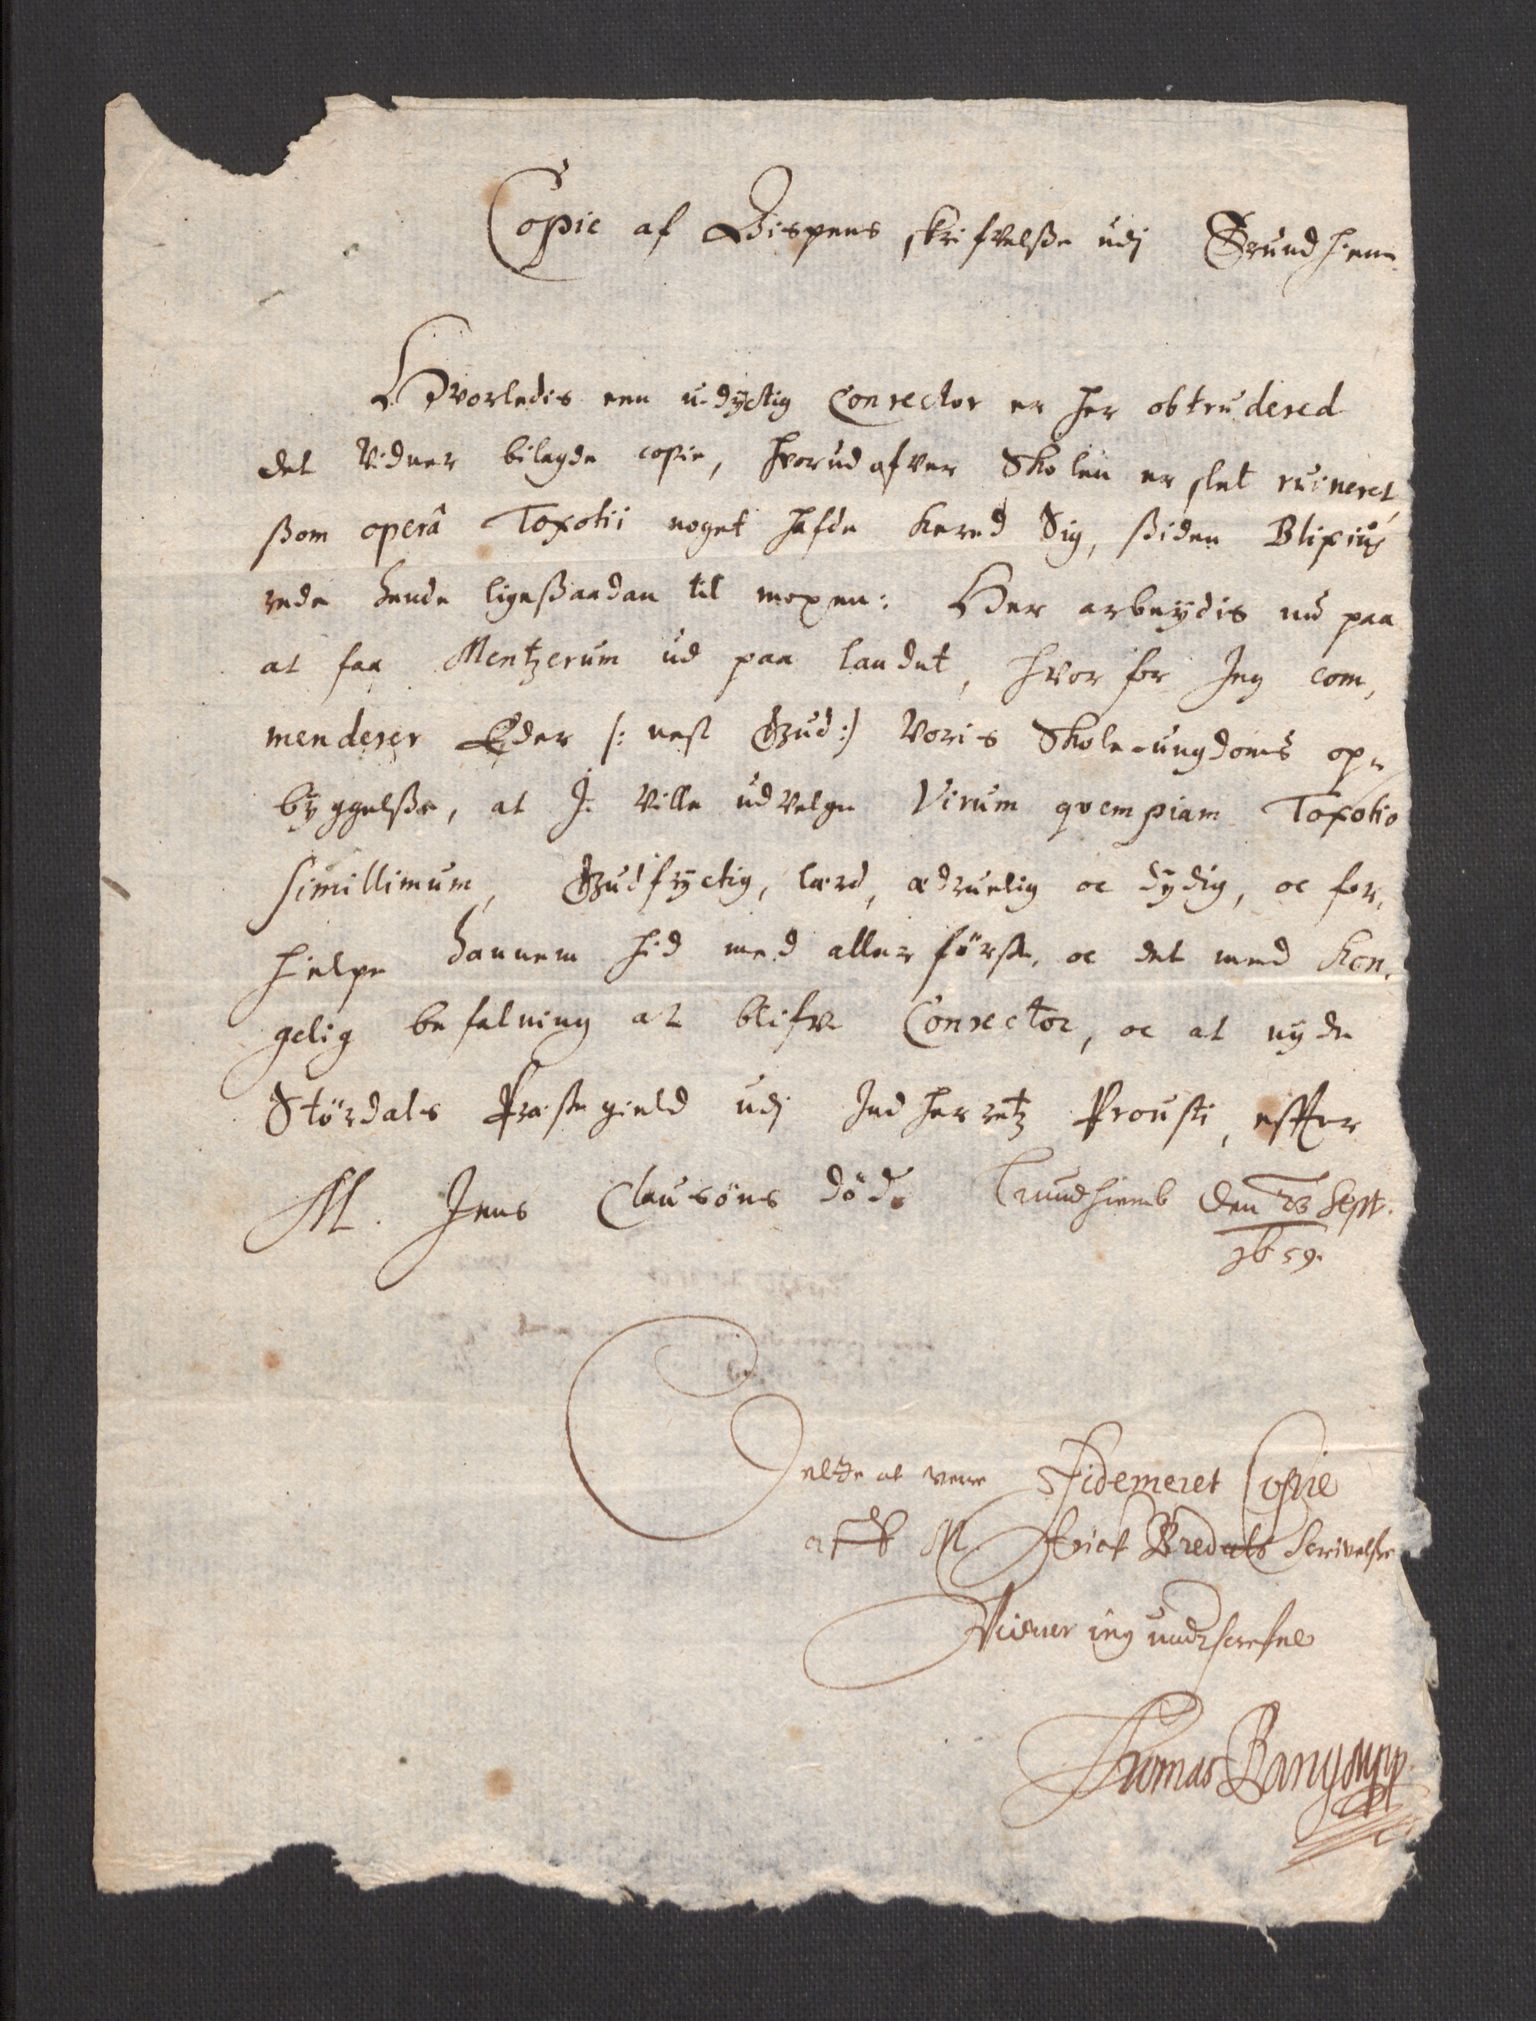 Copie af Bispens skrifvelße udj Trundhiem
Hvorledis een udyctig Conrector er her obtrudered
det Vidner bilagde copie, hvorudofver Skolen er slet ruineret,
ßom operâ Toxotii noget hafde kered Sig, ßiden Blixius
rede hende ligeßaadan til moxen: Her arbeydis nu paa
at faa Mentzerum ud paa landet, hvor for Jeg com,
menderer Eder /: nest Gud :/ Voris Skole-ungdoms op,
byggelße, at J. Ville udVelge Virum qvempiam Toxotio
simillimum, Gudfryctig, lærd, ædruelig oc dydig, oc for,
hielpe hannem hid med allerförste, oc det med Kon,
gelig befalning at blifve Conrector, oc at nyde
Stördals Præstegield udj Indherretz Prousti, efter
M. Jens Clausöns död. Trundhiemb den 23 Sept.
1659.
Dette at vere Fidemeret Copie
aff M Erick Bredals Scrivelße
Vidner ieg underscrefne
Thomas